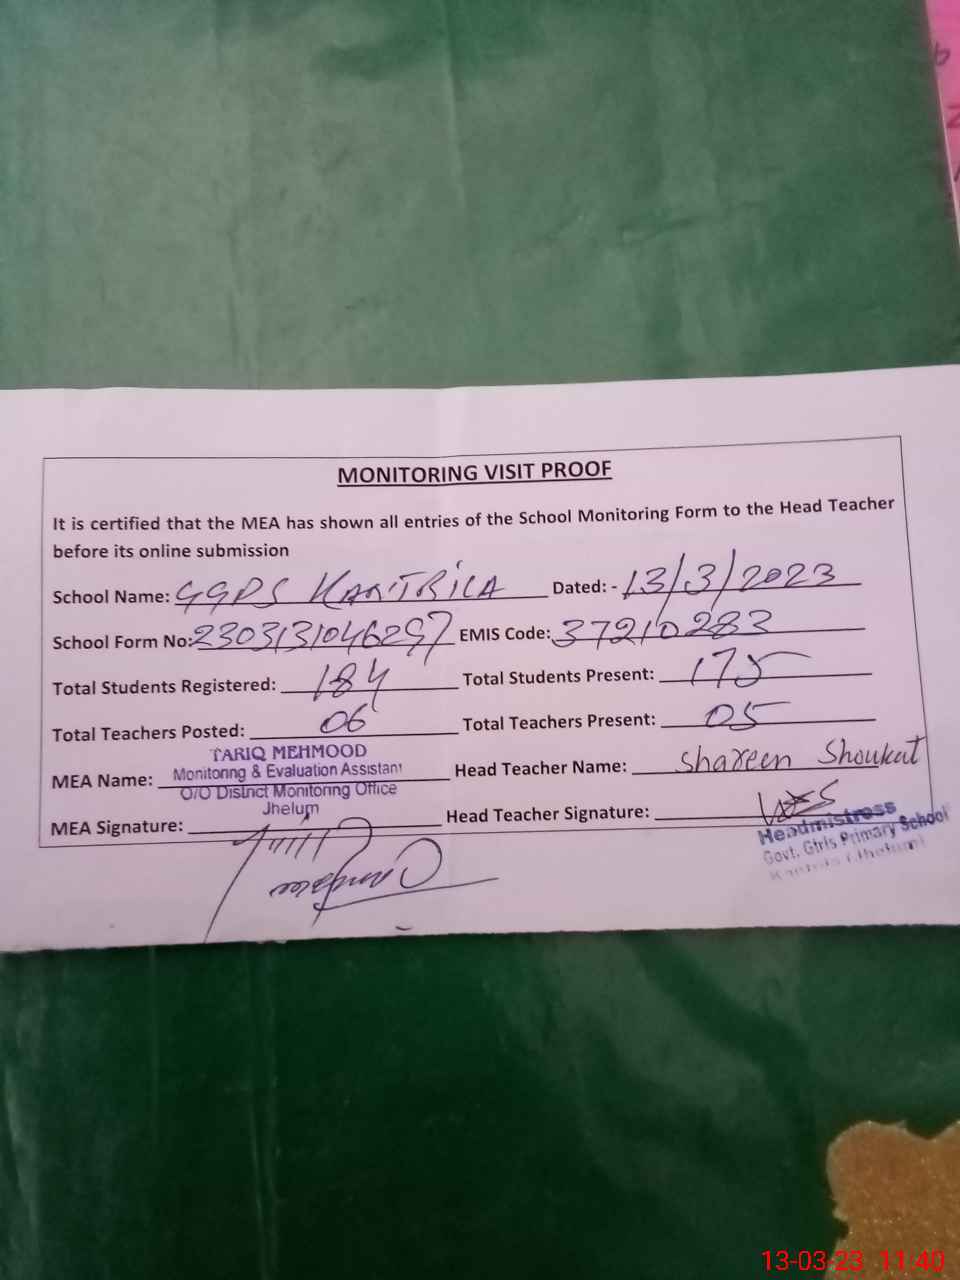 MONITORING VISIT PROOF
It is certified that the MEA has shown all entries of the School Monitoring Form to the Head Teacher
before its online submission
School Name: GGPS KANTRILA Dated: - 13/3/2023
School Form No: 2303131046297 EMIS Code: 37210283
Total Students Registered: 184 Total Students Present: 175
Total Teachers Posted: 06 Total Teachers Present: 05
MEA Name: TARIQ MEHMOOD Head Teacher Name: Shareen Shoukat
Monitoring & Evaluation Assistant
O/O District Monitoring Office
Jhelum
MEA Signature: Head Teacher Signature:
Headmistress
Govt. Girls Primary School
13-03-23 11:40